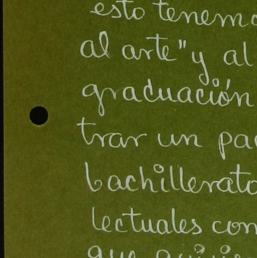 esto tenemo
al arte" y al
graduación
trar un pa
bachillerato
lectuales con